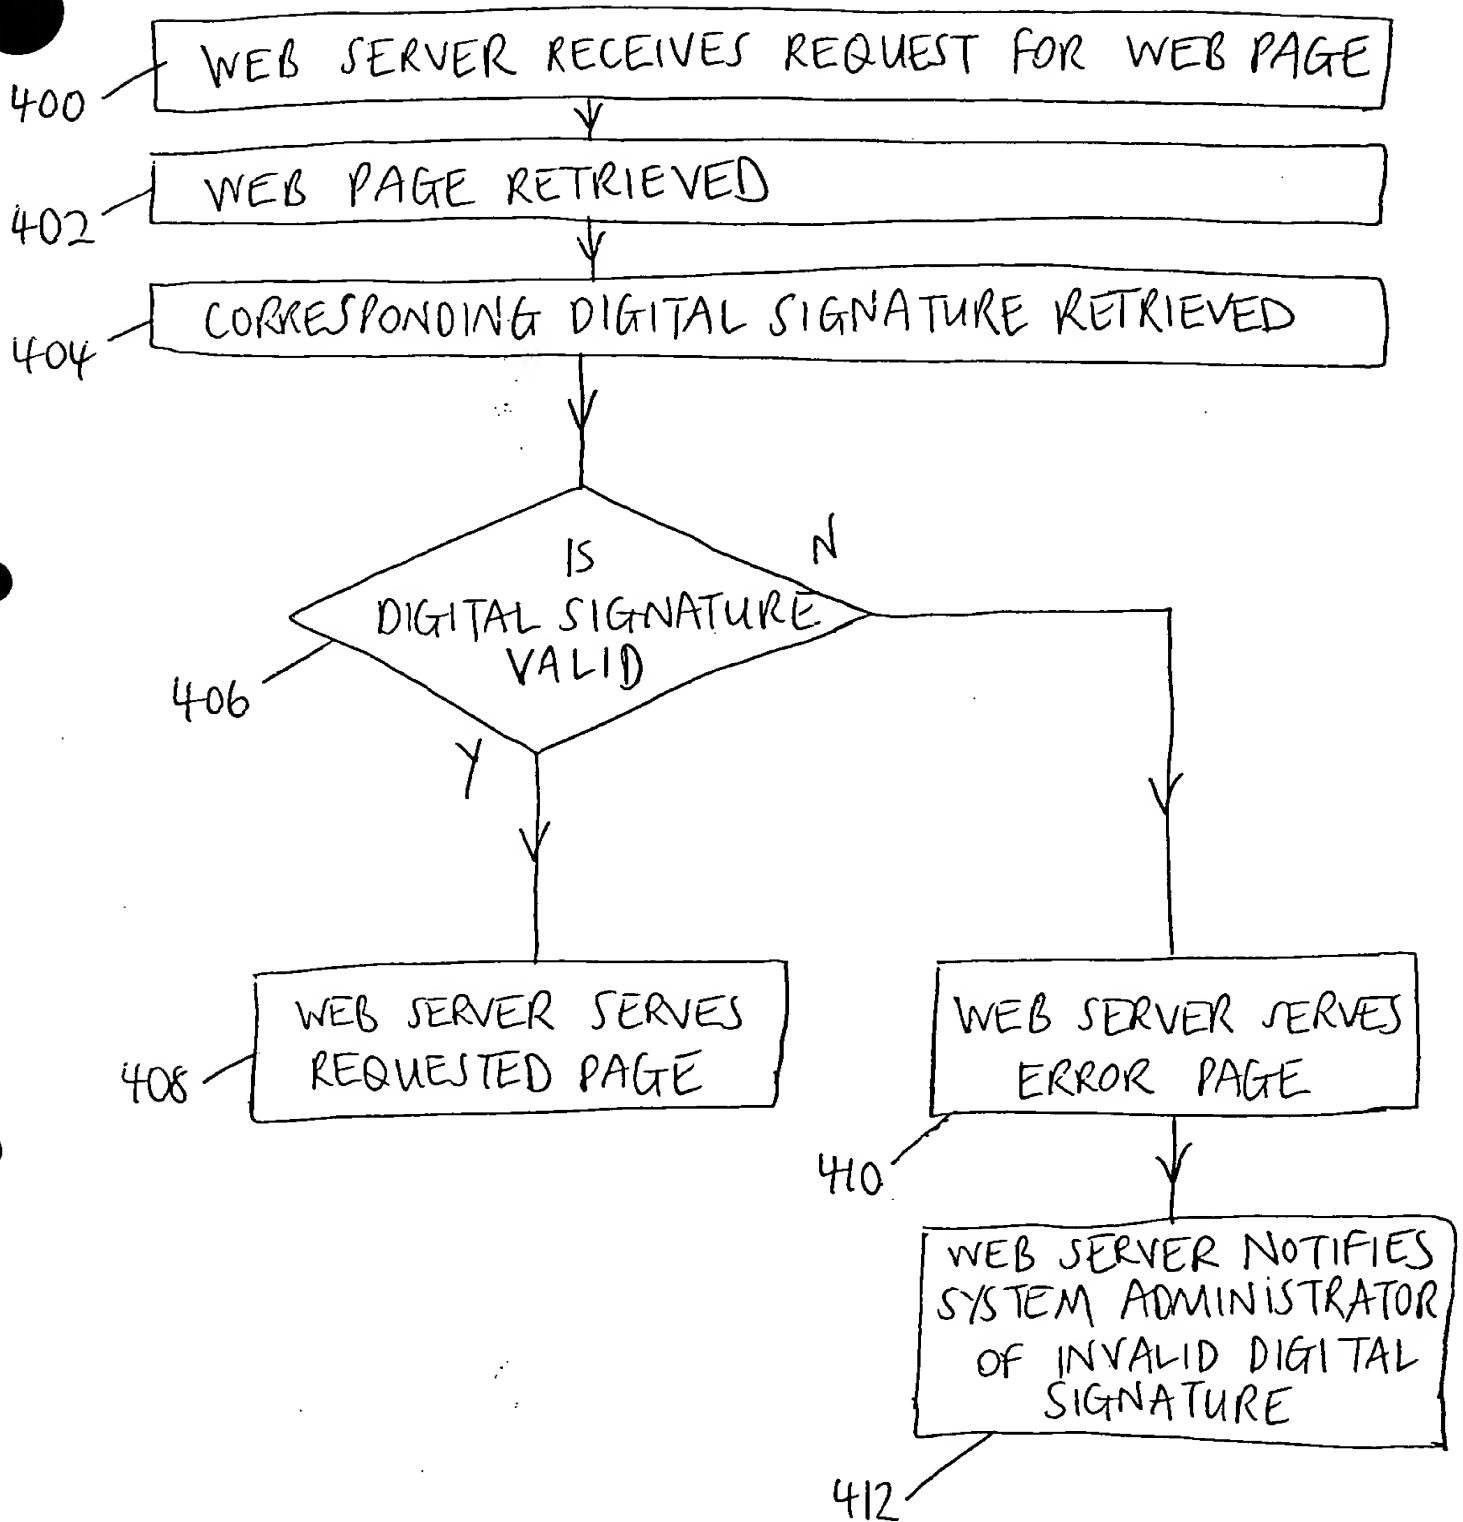 400
WEB SERVER RECEIVES REQUEST FOR WEB PAGE
402
WEB PAGE RETRIEVED
404
CORRESPONDING DIGITAL SIGNATURE RETRIEVED
N
IS
DIGITAL SIGNATURE
VALID
406
Y
WEB SERVER SERVES
REQUESTED PAGE
408
WEB SERVER SERVES
ERROR PAGE
410
WEB SERVER NOTIFIES
SYSTEM ADMINISTRATOR
OF INVALID DIGITAL
SIGNATURE
412